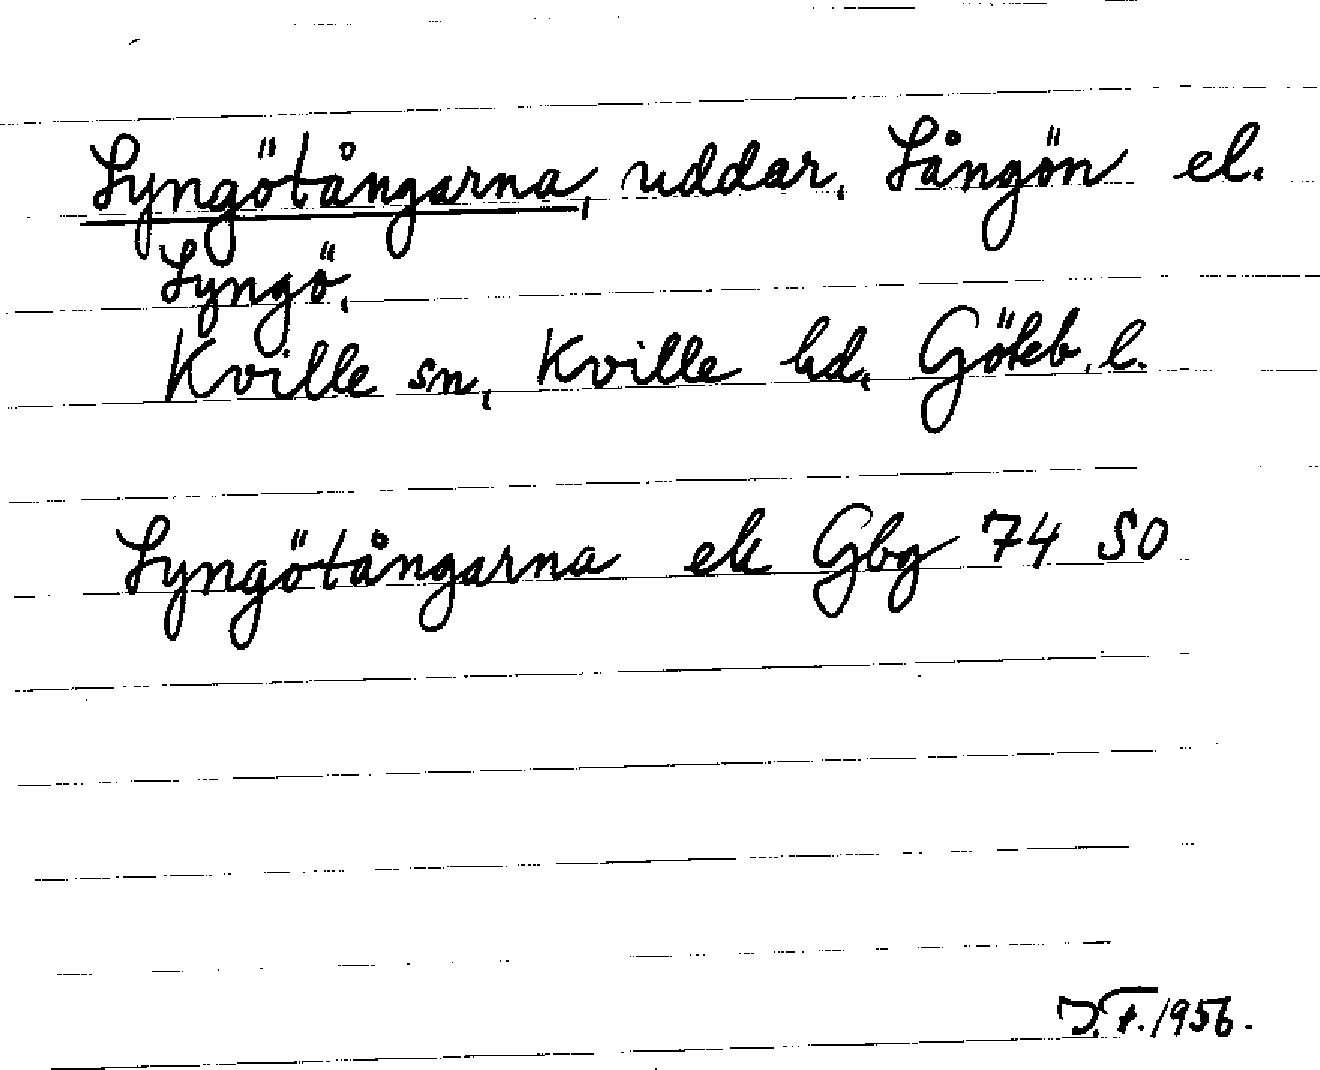 Lyngötångarna, uddar, Långön el.
Lyngö,
Kville sn, Kville hd, Göteb. l.
Lyngötångarna ek Gbg 74 SO
J.F. 1956.